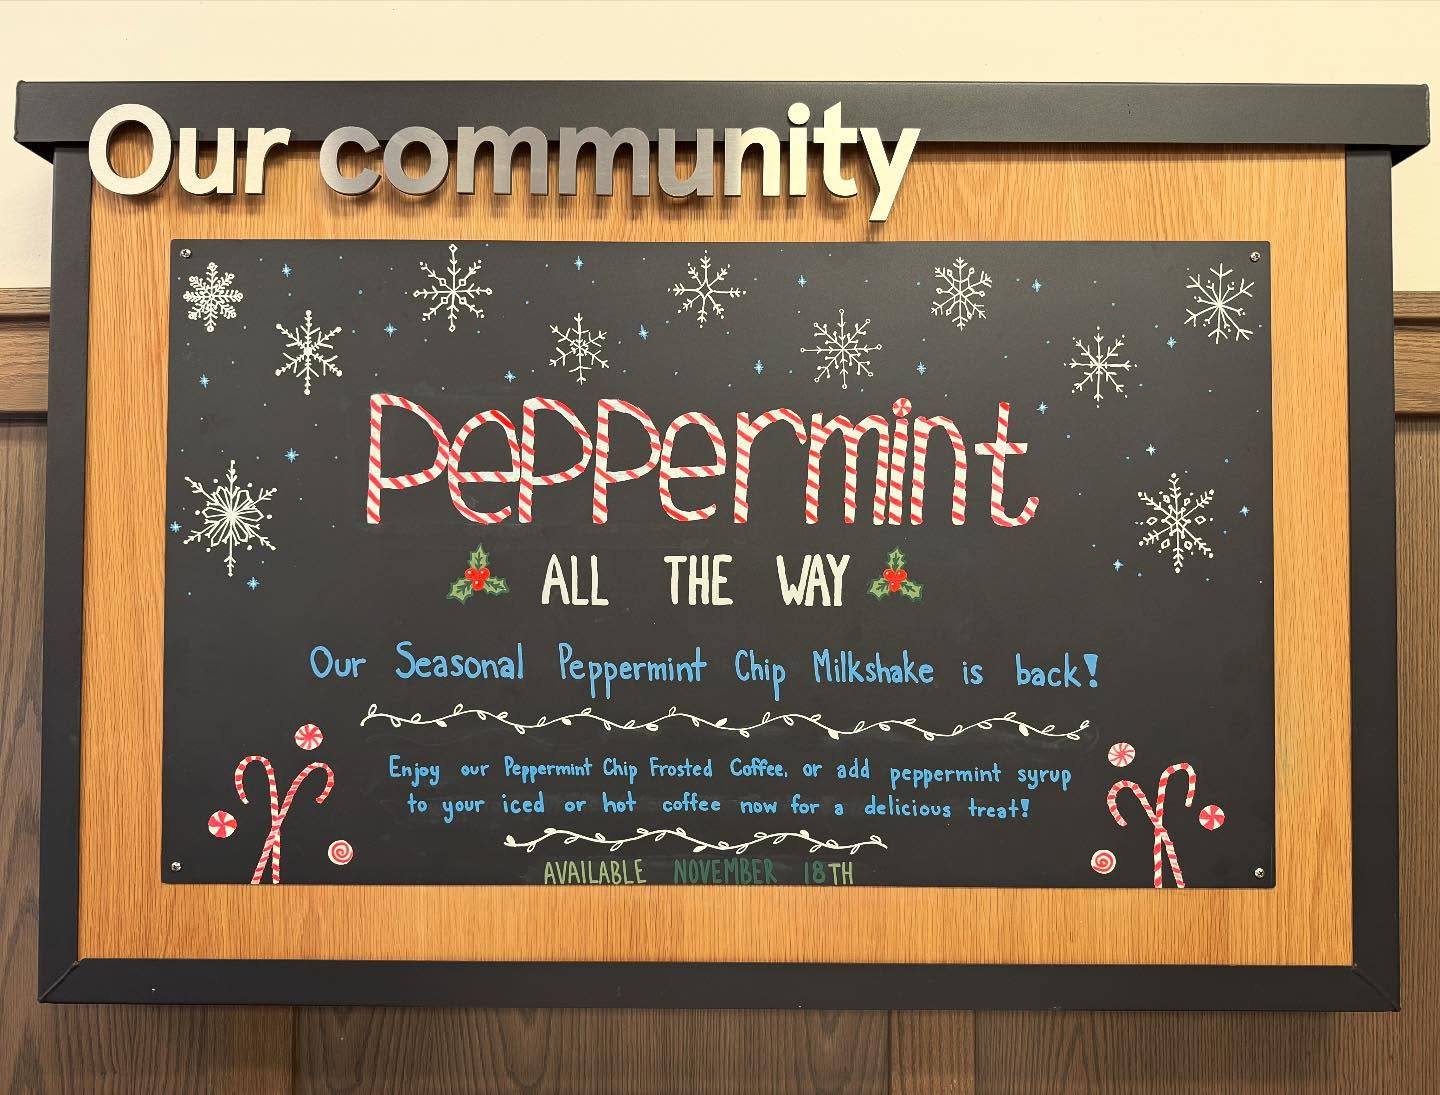 Our community
Peppermint
ALL THE WAY
Our Seasonal Peppermint Chip Milkshake is back!
Enjoy our Peppermint Chip Frosted Coffee, or add peppermint syrup
to your iced or hot coffee now for a delicious treat!
AVAILABLE NOVEMBER 18TH